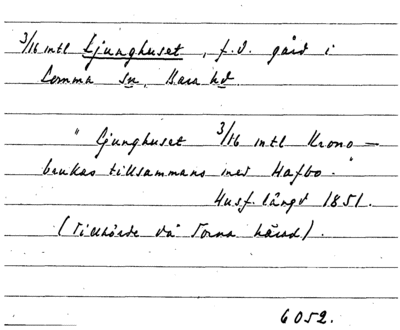 3/16 mtl Ljunghuset, f.d. gård i
Lomma sn, Bara hd.
"Ljunghuset 3/16 mtl Krono—
brukas tillsammans med Hafbo."
Husf. längd 1851.
(Tillhörde då Torna härad).
6052.